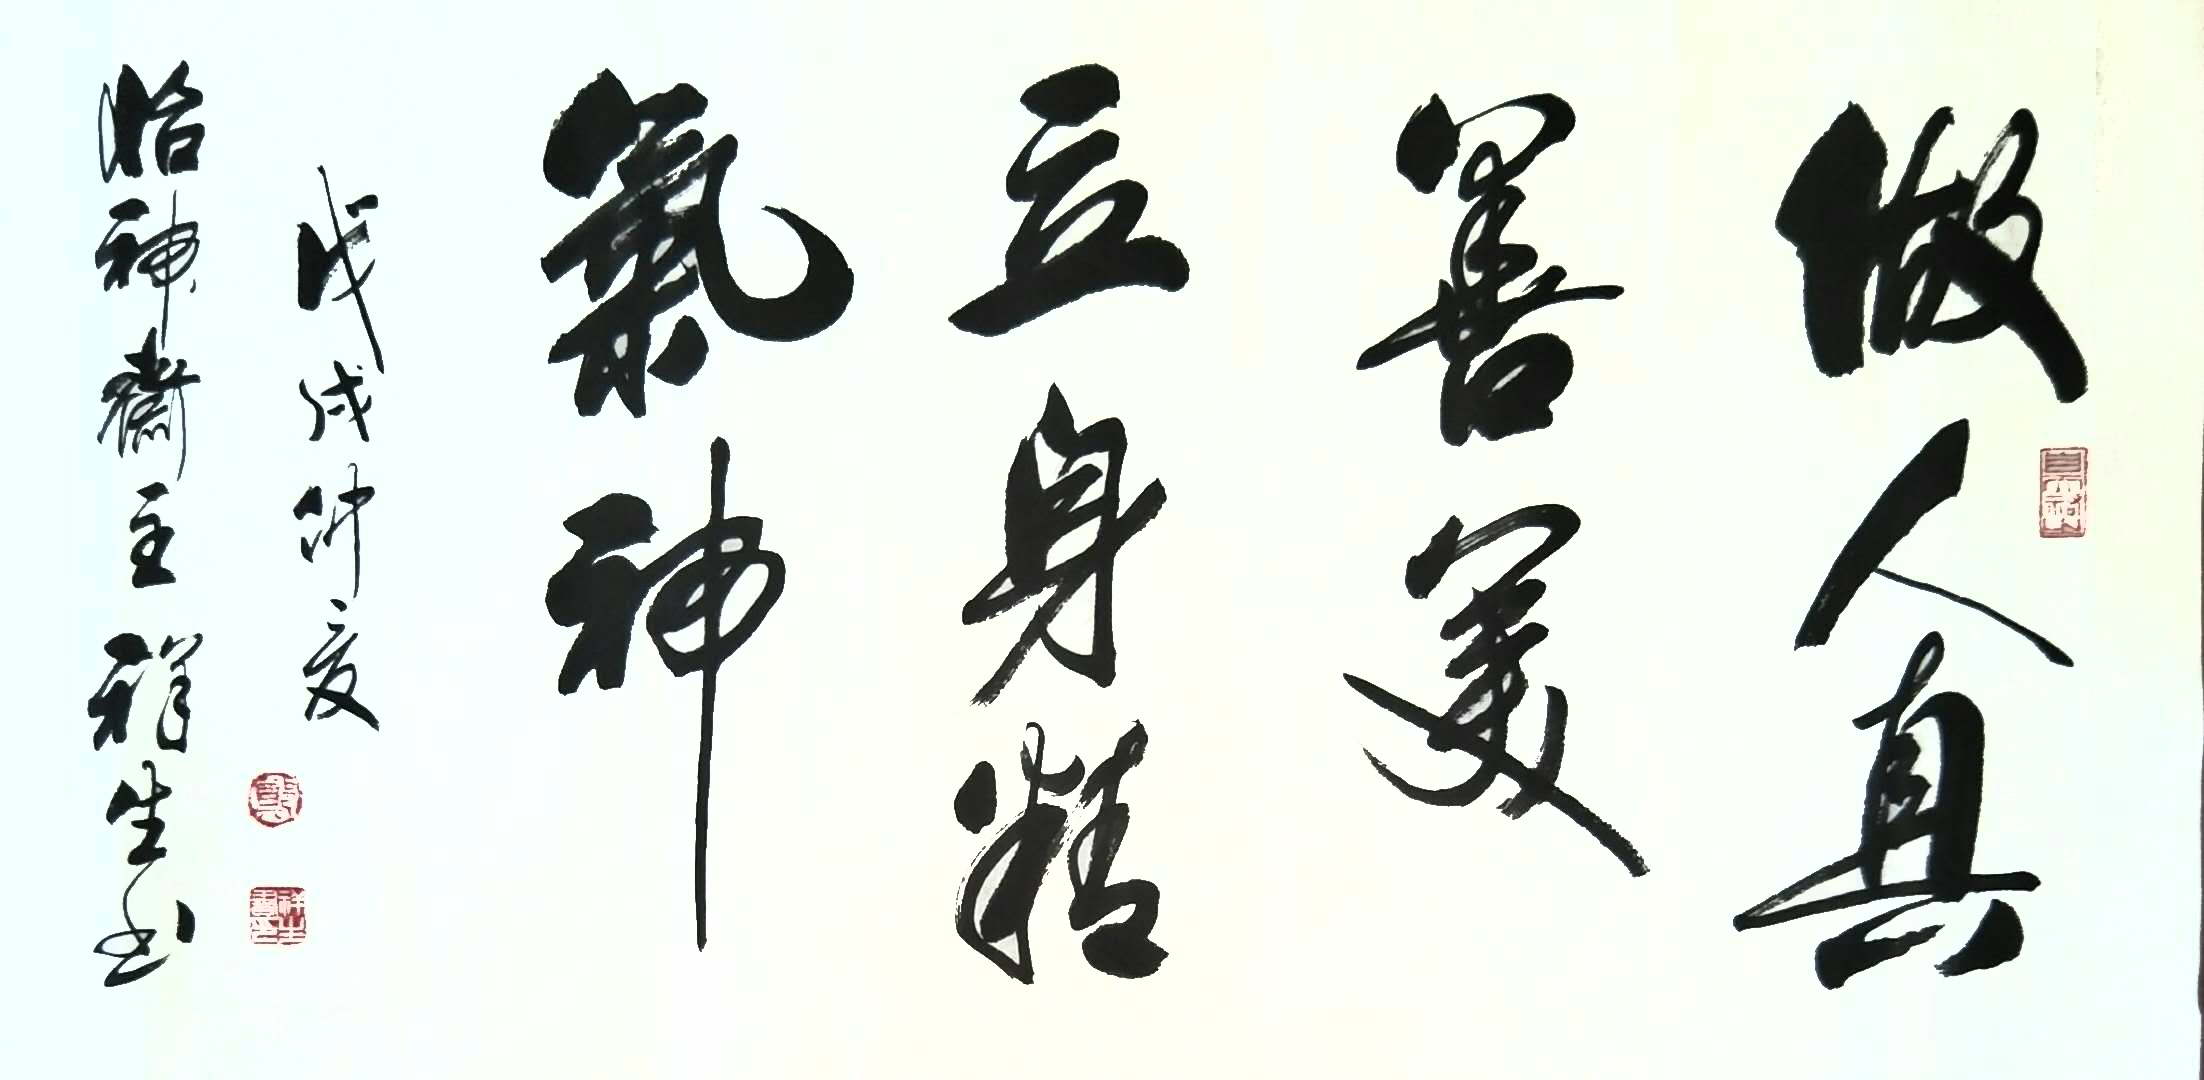 做人真
善美
立身精
氣神
戊戌仲夏
怡神齋主祥生书